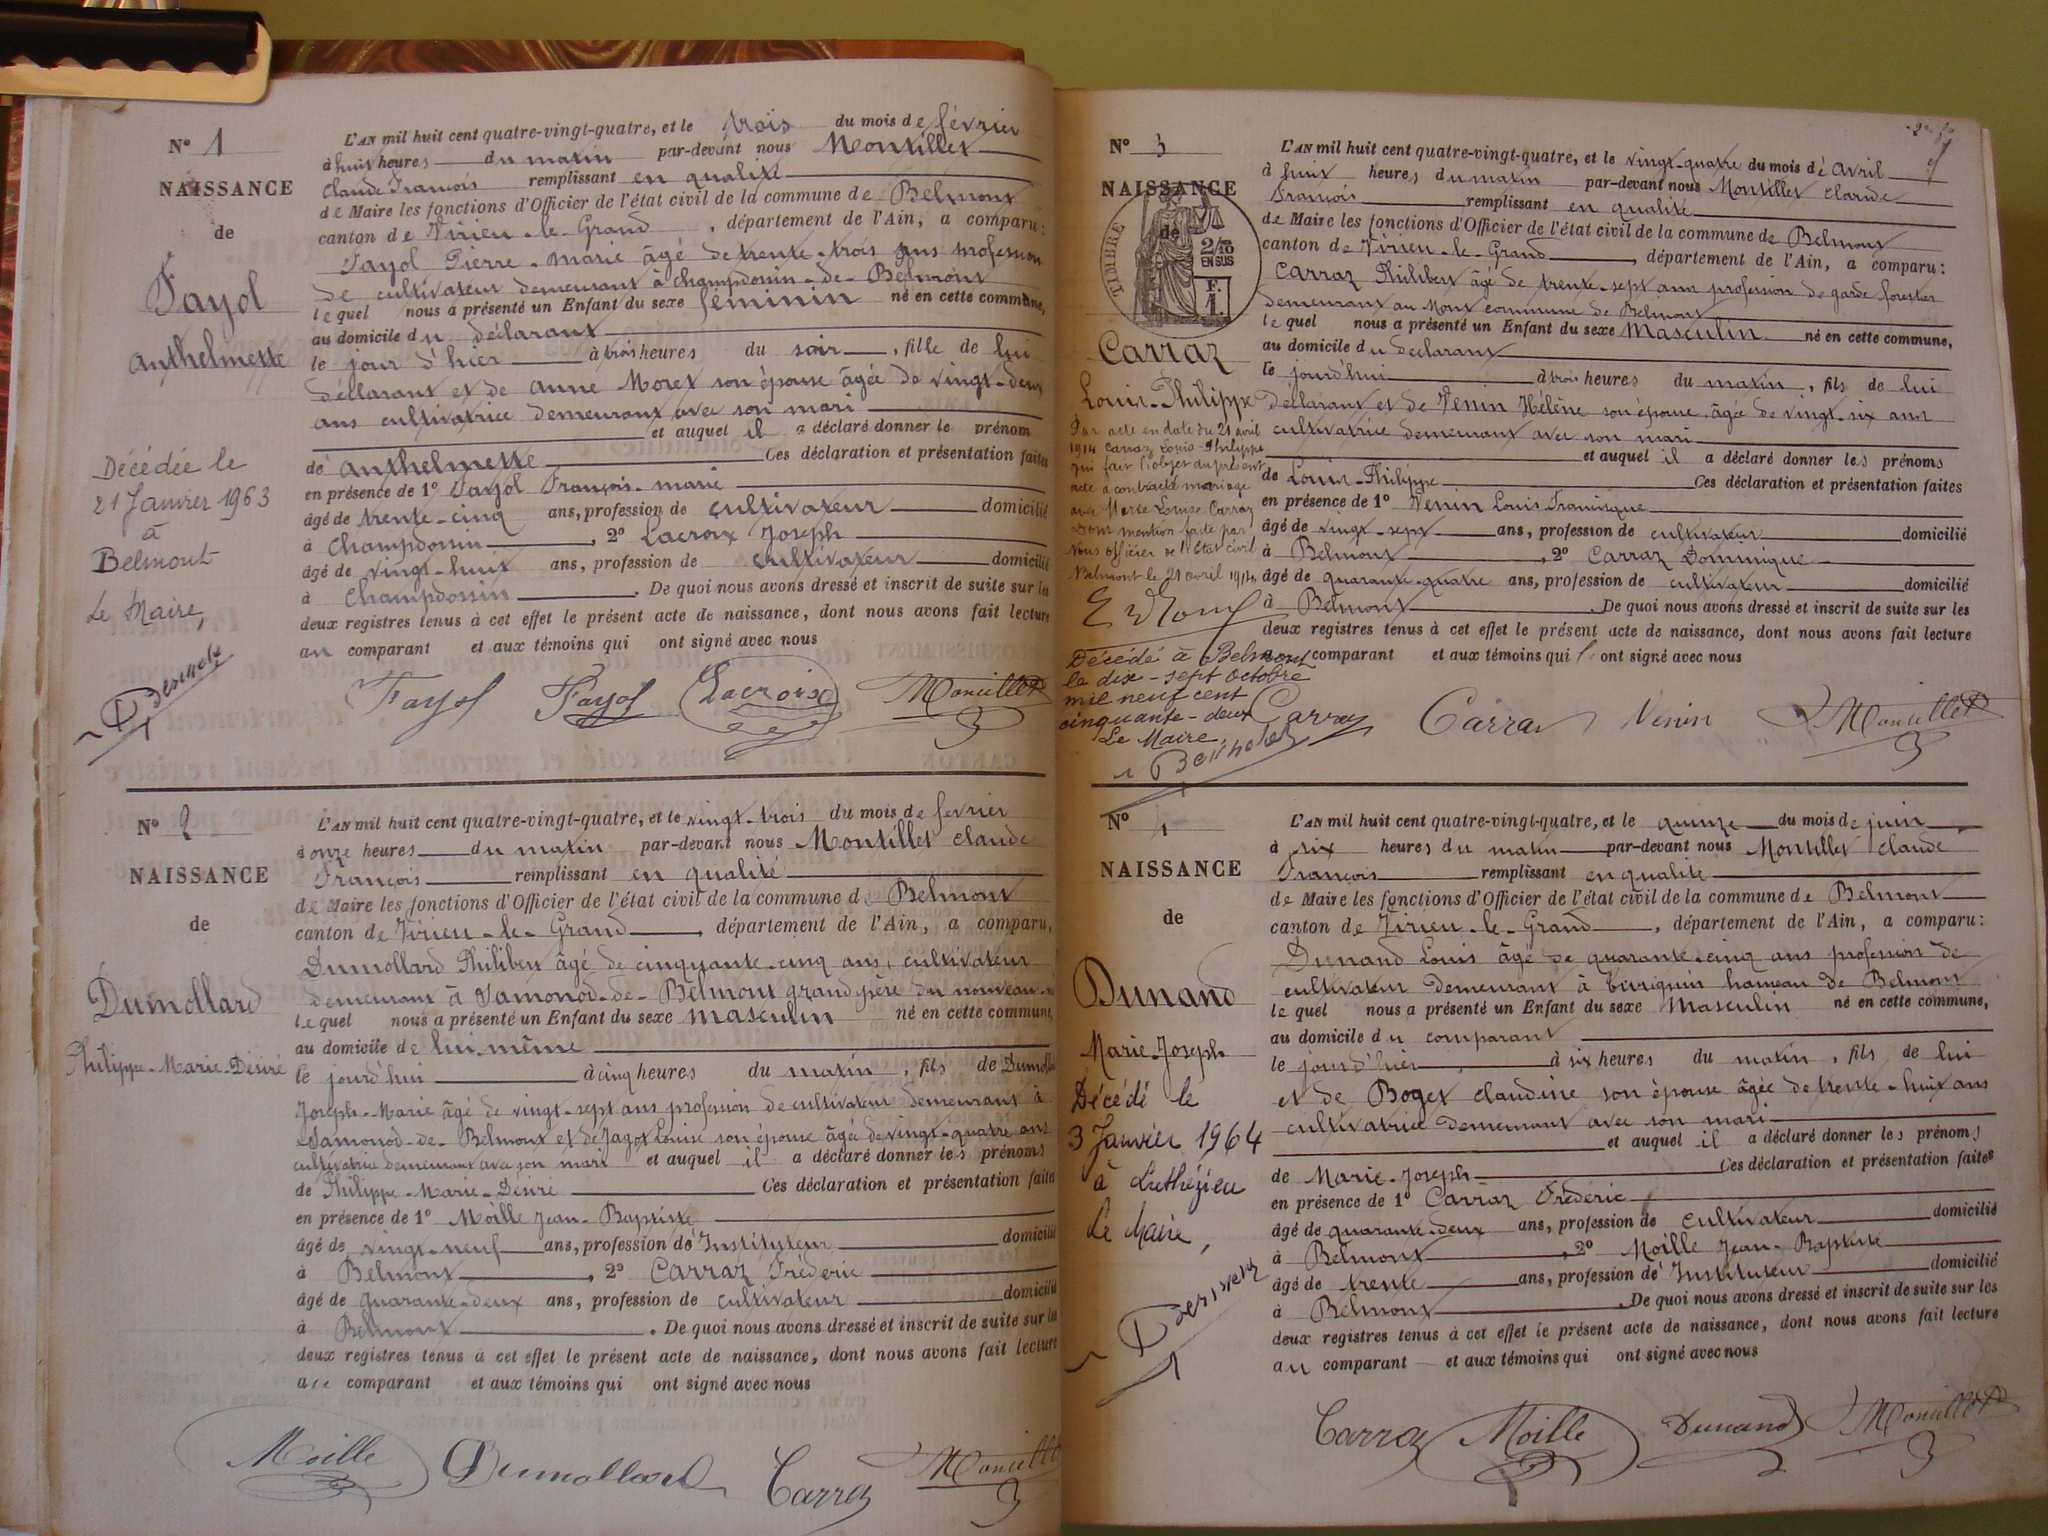 N° 1
NAISSANCE
de
Fayol
Anthelmette
Décédée le
21 Janvier 1963
à
Belmont
Le Maire,
L'AN mil huit cent quatre-vingt-quatre, et le trois du mois de février
à huit heures du matin par-devant nous Montillet
Claude François remplissant en qualité
de Maire les fonctions d'Officier de l'état civil de la commune de Belmont
canton de Virieu-le-Grand, département de l'Ain, a comparu:
Fayol Pierre-Marie âgé de trente-trois ans profession
de cultivateur demeurant à Champdossin-de-Belmont
lequel nous a présenté un Enfant du sexe féminin né en cette commune,
au domicile du déclarant
le jour d'hier à trois heures du soir, fille de lui
déclarant et de Anne Moret son épouse âgée de vingt-deux
ans cultivatrice demeurant avec son mari
et auquel il a déclaré donner le prénom
de Anthelmette Ces déclaration et présentation faites
en présence de 1° Fayol François-marie
âgé de trente-cinq ans, profession de cultivateur domicilié
à Champdossin, 2° Lacroix Joseph
âgé de vingt-huit ans, profession de cultivateur domicilié
à Champdossin. De quoi nous avons dressé et inscrit de suite sur les
deux registres tenus à cet effet le présent acte de naissance, dont nous avons fait lecture
au comparant et aux témoins qui ont signé avec nous
Fayol Fayol Lacroix Montillet
N° 2
NAISSANCE
de
Dumollard
Philippe-Marie-Désiré
L'AN mil huit cent quatre-vingt-quatre, et le vingt-trois du mois de fevrier
à onze heures du matin par-devant nous Montillet Claude
François remplissant en qualité
de Maire les fonctions d'Officier de l'état civil de la commune de Belmont
canton de Virieu-le-Grand, département de l'Ain, a comparu,
Dumollard Philibert âgé de cinquante-cinq ans, cultivateur
demeurant à Samonod-de-Belmont grand père du nouveau-né
lequel nous a présenté un Enfant du sexe masculin né en cette commune,
au domicile de lui-même
le jourd'hui à cinq heures du matin, fils de Dumollard
Joseph-Marie âgé de vingt-sept ans profession de cultivateur demeurant à
Samonod-de-Belmont et de Jagot Louise son épouse âgée de vingt-quatre ans
cultivatrice demeurant avec son mari et auquel il a déclaré donner les prénoms
de Philippe-Marie-Désiré Ces déclaration et présentation faites
en présence de 1° Moille Jean-Baptiste
âgé de vingt-neuf ans, profession de Instituteur domicilié
à Belmont, 2° Carraz Fréderic
âgé de quarante-deux ans, profession de cultivateur domicilié
à Belmont. De quoi nous avons dressé et inscrit de suite sur les
deux registres tenus à cet effet le présent acte de naissance, dont nous avons fait lecture
au comparant et aux témoins qui ont signé avec nous
Moille Dumollard Carraz Montillet
N° 3
NAISSANCE
de
TIMBRE
2/10
EN SUS
F.
1.
Carraz
Louis-Philippe
Par acte en date du 21 avril
1914 Carraz Louis-Philippe
qui fait l'objet du présent
acte a contracté mariage
avec Marie Louise Carraz
Dont mention faite par
nous officier de l'état civil
Belmont le 21 avril 1914
Décédé à Belmont
le dix-sept octobre
mil neuf cent
cinquante-deux
Le Maire,
L'AN mil huit cent quatre-vingt-quatre, et le vingt-quatre du mois de Avril
à huit heures du matin par-devant nous Montillet Claude
François remplissant en qualité
de Maire les fonctions d'Officier de l'état civil de la commune de Belmont
canton de Virieu-le-Grand, département de l'Ain, a comparu:
Carraz Philibert âgé de trente-sept ans profession de garde forestier
demeurant au Mont commune de Belmont
lequel nous a présenté un Enfant du sexe Masculin né en cette commune,
au domicile du déclarant
le jourd'hui à trois heures du matin, fils de lui
déclarant et de Venin Hélène son épouse âgée de vingt-six ans
cultivatrice demeurant avec son mari
et auquel il a déclaré donner les prénoms
de Louis-Philippe Ces déclaration et présentation faites
en présence de 1° Venin Louis
âgé de vingt-sept ans, profession de cultivateur domicilié
à Belmont, 2° Carraz Dominique
âgé de quarante-quatre ans, profession de cultivateur domicilié
à Belmont. De quoi nous avons dressé et inscrit de suite sur les
deux registres tenus à cet effet le présent acte de naissance, dont nous avons fait lecture
comparant et aux témoins qui ont signé avec nous
Carraz Carraz Venin Montillet
N° 4
NAISSANCE
de
Dunand
Marie-Joseph
Décédé le
3 Janvier 1964
à Luthézieu
Le Maire,
L'AN mil huit cent quatre-vingt-quatre, et le quinze du mois de juin
à six heures du matin par-devant nous Montillet Claude
François remplissant en qualité
de Maire les fonctions d'Officier de l'état civil de la commune de Belmont
canton de Virieu-le-Grand, département de l'Ain, a comparu:
Dunand Louis âgé de quarante-cinq ans profession de
cultivateur demeurant à hameau de Belmont
lequel nous a présenté un Enfant du sexe Masculin né en cette commune,
au domicile du comparant
le jour d'hier à six heures du matin, fils de lui
et de Boget Claudine son épouse âgée de trente-huit ans
cultivatrice demeurant avec son mari
et auquel il a déclaré donner les prénoms
de Marie-Joseph Ces déclaration et présentation faites
en présence de 1° Carraz Fréderic
âgé de quarante-deux ans, profession de cultivateur domicilié
à Belmont, 2° Moille Jean-Baptiste
âgé de trente ans, profession de Instituteur domicilié
à Belmont. De quoi nous avons dressé et inscrit de suite sur les
deux registres tenus à cet effet le présent acte de naissance, dont nous avons fait lecture
au comparant et aux témoins qui ont signé avec nous
Carraz Moille Dunand Montillet